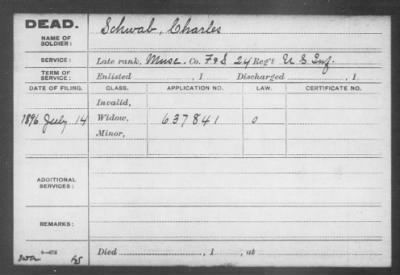 DEAD.
NAME OF SOLDIER: Schwab, Charles
SERVICE: Late rank, Musc. Co. F&S 24 Reg't U S Inf.
TERM OF SERVICE: Enlisted , 1 Discharged , 1
DATE OF FILING. CLASS. APPLICATION NO. LAW. CERTIFICATE NO.
Invalid,
1896 July 14 Widow, 637841 0
Minor,
ADDITIONAL SERVICES:
REMARKS:
Died , 1 , at